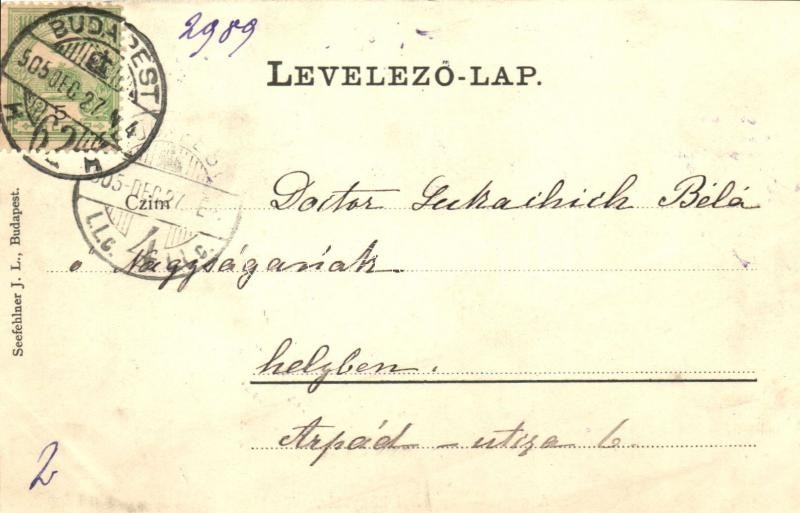 2989
BUDAPEST
905 DEC 27
5
62
LEVELEZŐ-LAP.
905 DEC 27
Czim Doctor Lukachich Béla
ő Nagyságának.
helyben.
Arpád-utcza 6
Seefehlner J. L., Budapest.
2